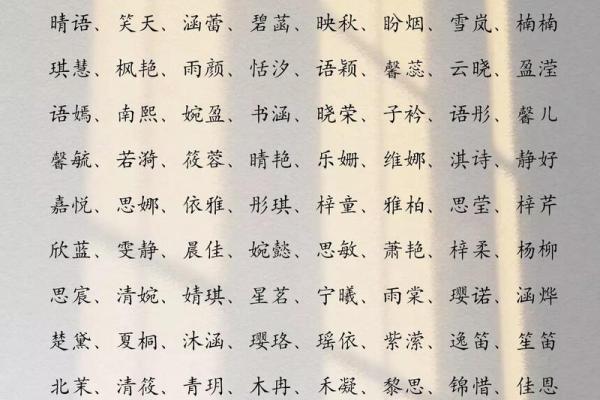 晴语、笑天、涵蕾、碧菡、映秋、盼烟、雪岚、楠楠
琪慧、枫艳、雨颜、恬汐、语颖、馨蕊、云晓、盈滢
语嫣、南熙、婉盈、书涵、晓荣、子衿、语彤、馨儿
馨毓、若漪、筱蓉、晴艳、乐姗、维娜、淇诗、静好
嘉悦、思娜、依雅、彤琪、梓童、雅柏、思莹、梓芹
欣蓝、雯静、晨佳、婉懿、思敏、萧艳、梓柔、杨柳
思宸、清婉、婧琪、星茗、宁曦、雨棠、璎诺、涵烨
楚黛、夏桐、沐涵、璎珞、瑶依、紫潆、逸笛、笙笛
北茉、清筱、青玥、木冉、禾凝、黎思、锦惜、佳恩